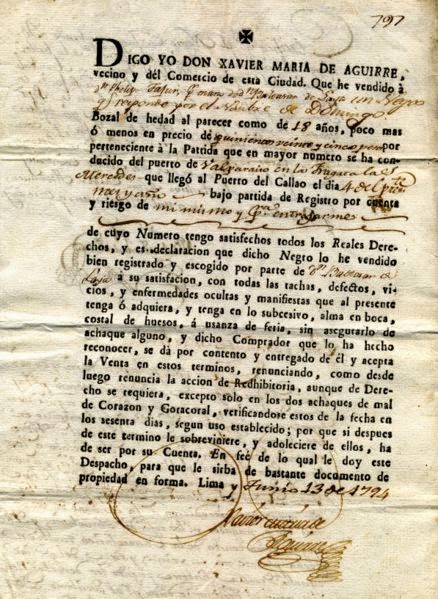 797
DIGO YO DON XAVIER MARIA DE AGUIRRE,
vecino y dél Comercio de esta Ciudad. Que he vendido à
un Negro
qe responde por el Nombre de Domingo
Bozal de hedad al parecer como de 18 años, poco mas
ó menos en precio de quinientos veinte y cinco pesos
perteneciente à la Partida que en mayor numero se ha con-
ducido del puerto de Valparaiso en la Fragata las
Mercedes que llegó al Puerto del Callao el dia 4 del
mes y año bajo partida de Registro por cuenta
y riesgo de mi mismo y
de cuyo Numero tengo satisfechos todos los Reales Dere-
chos, y es declaracion que dicho Negro lo he vendido
bien registrado y escogido por parte de Dn
à su satisfacion, con todas las tachas, defectos, vi-
cios, y enfermedades ocultas y manifiestas que al presente
tenga ó adquiera, y tenga en lo subcesivo, alma en boca,
costal de huesos, á usanza de feria, sin asegurarlo de
achaque alguno, y dicho Comprador que lo ha hecho
reconocer, se dá por contento y entregado de él y acepta
la Venta en estos terminos, renunciando, como desde
luego renuncia la accion de Redhibitoria, aunque de Dere-
cho se requiera, excepto solo en los dos achaques de mal
de Corazon y Gotacoral, verificandose estos de la fecha en
los sesenta dias, segun uso establecido; por que si despues
de este termino le sobreviniere, y adoleciere de ellos, ha
de ser por su Cuenta. En feé de lo qual le doy este
Despacho, para que le sirba de bastante documento de
propiedad en forma. Lima y Junio 13 de 1794
Xavier Maria de
Aguirre